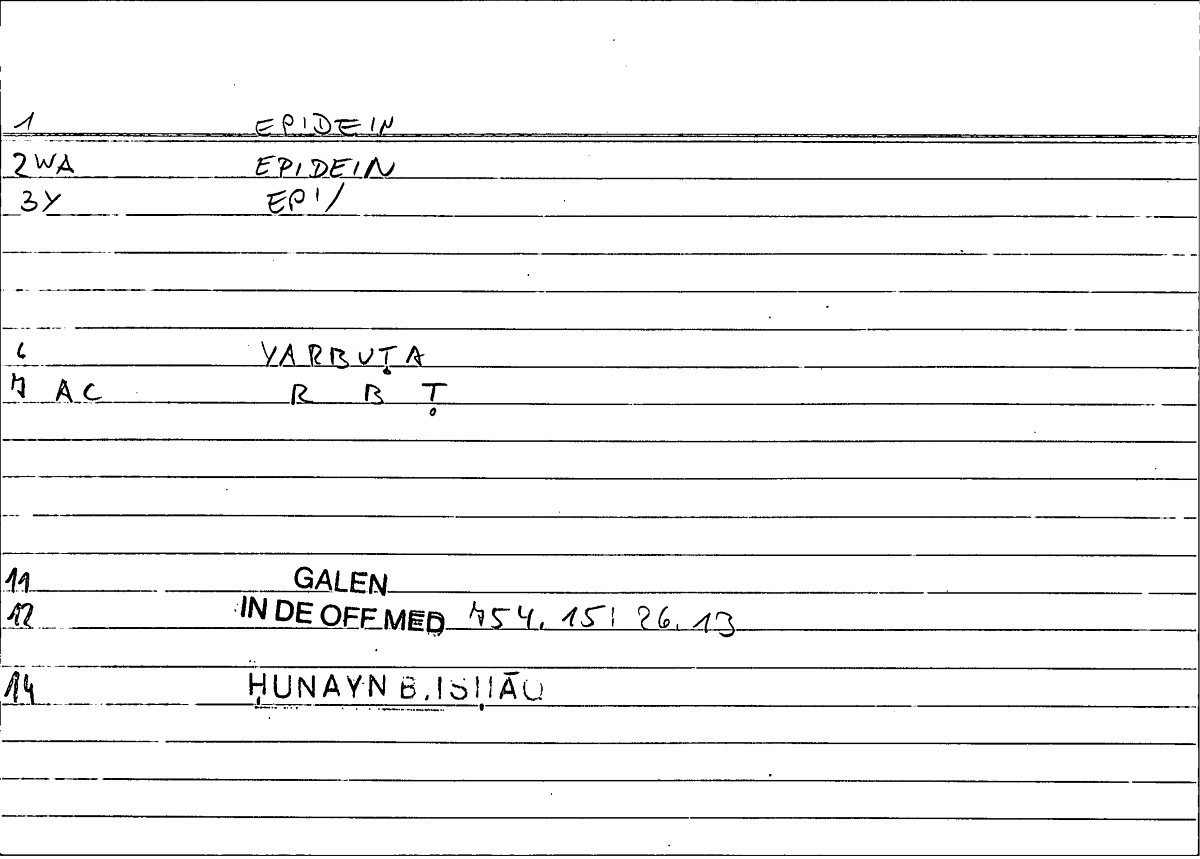 1 EPIDEIN
2WA EPIDEIN
3Y EPI/
6 YARBUṬA
7 AC R B Ṭ
11 GALEN
12 IN DE OFF MED 754. 15: 26. 13
14 ḤUNAYN B. ISḤĀQ